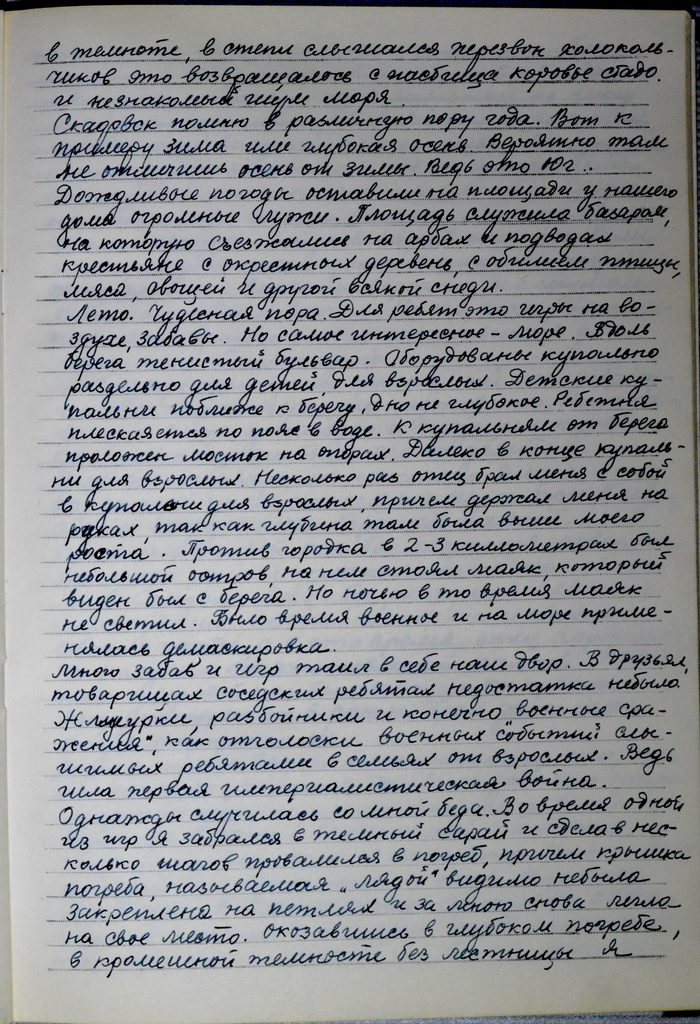 в темноте, в степи слышался перезвон колоколь-
чиков это возвращалось с пастбища коровье стадо.
и незнакомый шум моря.
Скадовск помню в различную пору года. Вот к
примеру зима или глубокая осень. Вероятно там
не отличишь осень от зимы. Ведь это юг..
Дождливые погоды оставили на площади у нашего
дома огромные лужи. Площадь служила базаром,
на которую съезжались на арбах и подводах
крестьяне с окрестных деревень, с обилием птицы,
мяса, овощей и другой всякой снеди.
Лето. Чудесная пора. Для ребят это игры на во-
здухе, забавы. Но самое интересное – море. Вдоль
берега тенистый бульвар. Оборудованы купально
раздельно для детей, для взрослых. Детские ку-
пальни поближе к берегу, дно не глубокое. Ребетня
плескается по пояс в воде. К купальням от берега
проложен мосток на опорах. Далеко в конце купаль-
ни для взрослых. Несколько раз отец брал меня с собой
в купальни для взрослых, причем держал меня на
руках, так как глубина там была выше моего
роста. Против городка в 2-3 километрах был
небольшой остров, на нем стоял маяк, который
виден был с берега. Но ночью в то время маяк
не светил. Было время военное и на море приме-
нялась демаскировка.
Много забав и игр таил в себе наш двор. В друзьях,
товарищах соседских ребятах недостатка небыло.
Жмурки, разбойники и конечно военные сра-
жения", как отголоски военных событий слы-
шимых ребятами в семьях от взрослых. Ведь
шла первая империалистическая война.
Однажды случилась со мной беда. Во время одной
из игр я забрался в темный сарай и сделав нес-
колько шагов провалился в погреб, причем крышка
погреба, называемая „лядой" видимо небыла
закреплена на петлях и за мною снова легла
на свое место. Оказавшись в глубоком погребе,
в кромешной темноте без лестницы я